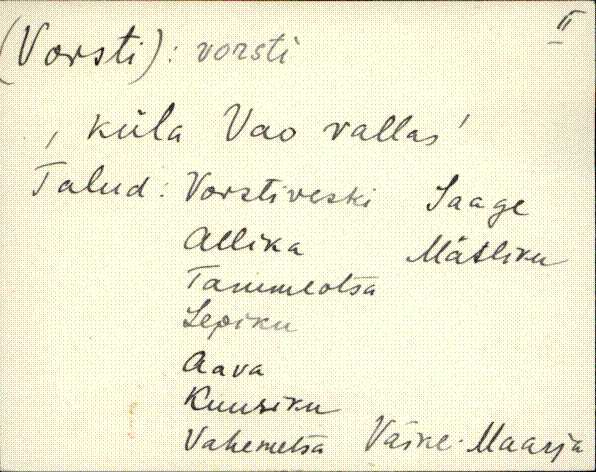 II
(Vorsti): vorsti
, küla Vao vallas'
Talud: Vorstiveski Saage
Allika Mätliku
Tammeotsa
Lepiku
Aava
Kuusiku
Vahemetsa Väike-Maarja